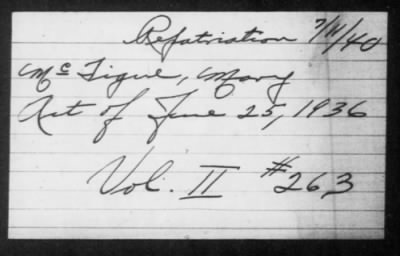 Repatriation 7/11/40
McTigue, Mary
Act of June 25, 1936
Vol. II #263